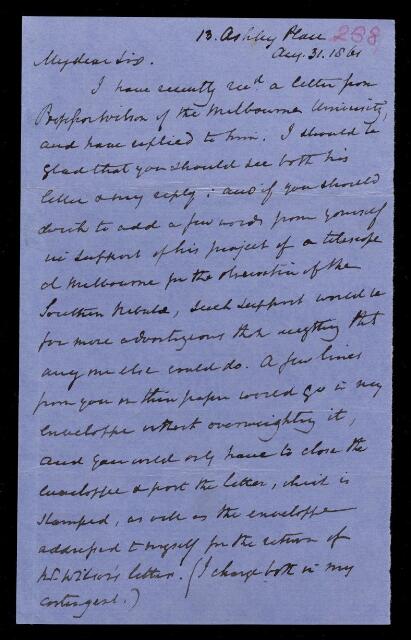 13. Ashley Place 238
Aug. 31. 1861
My dear Sir.
I have recently recd a letter from
Professor Wilson of the Melbourne University,
and have replied to him. I should be
glad that you should see both his
letter & my reply; and if you should
wish to add a few words from yourself
in support of his project of a telescope
at Melbourne for the observation of the
Southern Nebulæ, such support would be
far more advantageous than anything that
any one else could do. A few lines
from you on thin paper would go in my
enveloppe without overweighting it,
and you would only have to close the
enveloppe & post the letter, which is
stamped, as well as the enveloppe
addressed to myself for the return of
Mr Wilson's letter. (I charge both in my
contingent.)